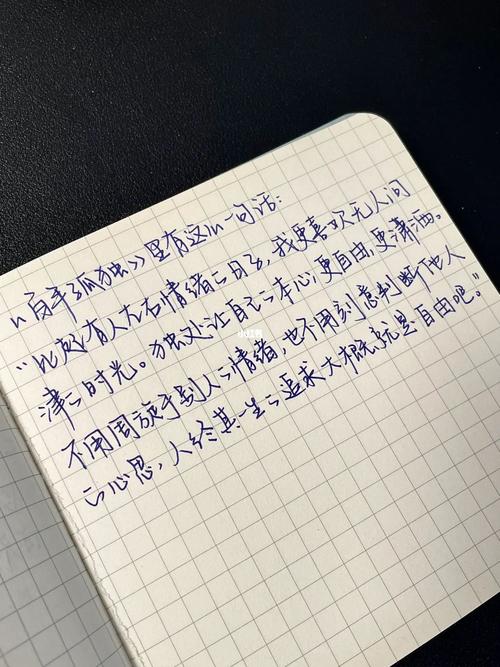 《百年孤独》里有这么一句话：
“比起有人左右情绪的日子，我更喜欢无人问
津的时光。独处让自己的本心，更自由，更潇洒。
不用周旋于别人的情绪，也不用刻意判断他人
的心思，人终其一生的追求大概就是自由吧。”
小红书